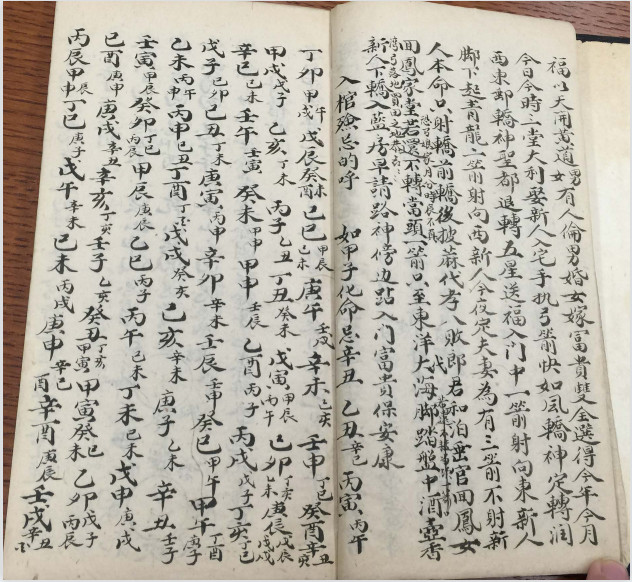 福以天開黃道男女有人倫男婚女嫁富貴雙全選得今年今月
今日今時三堂大利娶新人入宅手执弓箭快如風轎神定轉洄
西東邨轎神聖都退轉五星送福入门中一箭射向東新人
脚下起青龍一箭射向西新人今夜定夫妻為有三箭不射新
人本命只射轎前轎後披蔴代孝八敗郎君和泊官回鳳女
回鳳家堂若還不轉當頭一箭只至東洋大海脚踏盤中酒壺香
新人下轎入蓝房早請路神傍边跕入门富貴保安康
入棺殮忌的呼 如甲子化命忌辛丑 乙丑辛巳 丙寅丙午
丁卯甲戌甲午 戊辰癸酉癸未 己巳甲辰己未 庚午壬戌 辛未乙亥 壬申丁巳 癸酉辛丑辛亥
甲戌戊子 乙亥丁未 丙子乙丑 丁丑癸未 戊寅甲辰丙午 己卯丁亥乙未 庚辰戊辰戊戌
辛巳己未 壬午壬寅 癸未甲申 甲申壬辰 乙酉丙子 丙戌戊子 丁亥丁巳
戊子己卯 己丑丁未 庚寅丙申 辛卯辛未 壬辰壬申 癸巳甲午 甲午庚子丁酉
乙未丙午 丙申己丑 丁酉丁亥 戊戌癸亥 己亥辛未 庚子乙未 辛丑壬子
壬寅甲辰 癸卯丁巳丙辰 甲辰庚辰 乙巳丙子 丙午己未 丁未己未 戊申庚戌
己酉庚申 庚戌辛丑 辛亥丁亥 壬子乙亥 癸丑丁亥甲寅 甲寅癸未癸巳 乙卯戊子丙辰
丙辰甲申甲辰 丁巳庚子 戊午辛未 己未丙戌 庚申辛巳 辛酉庚辰 壬戌辛丑